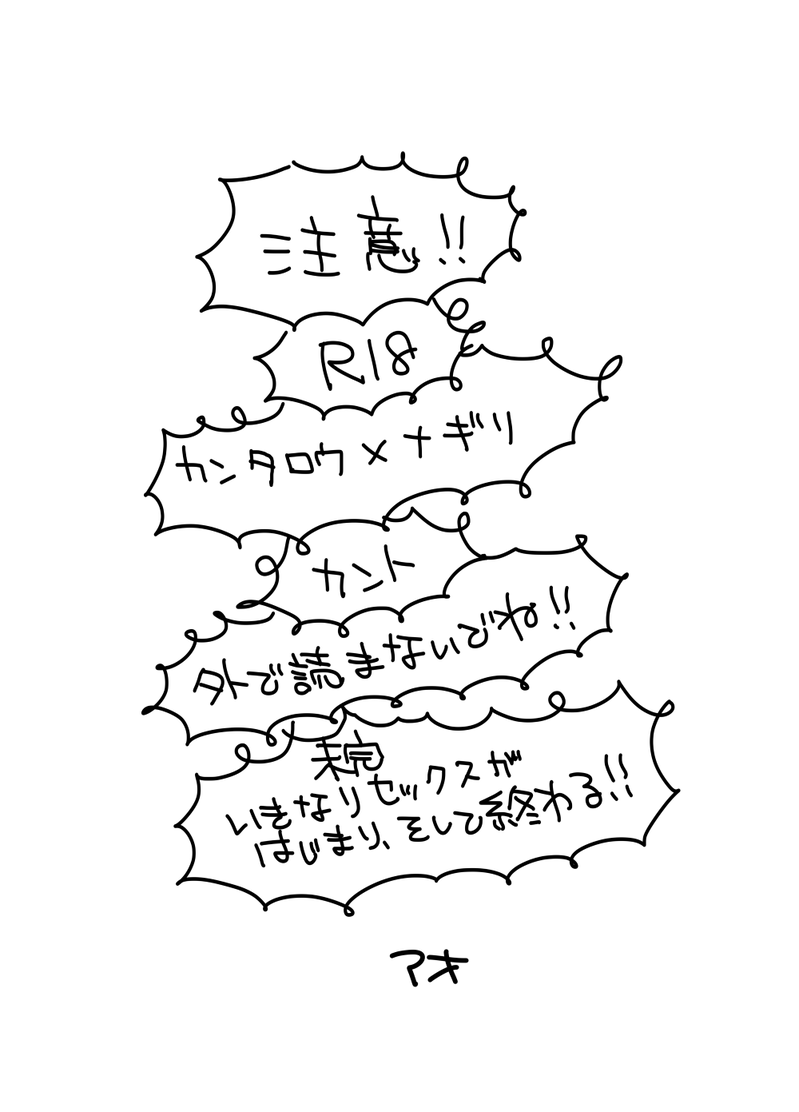 注意!!
R18
カンタロウ×ナギリ
カント
外で読まないでね!!
未完
いきなりセックスが
はじまり、そして終わる!!
アオ